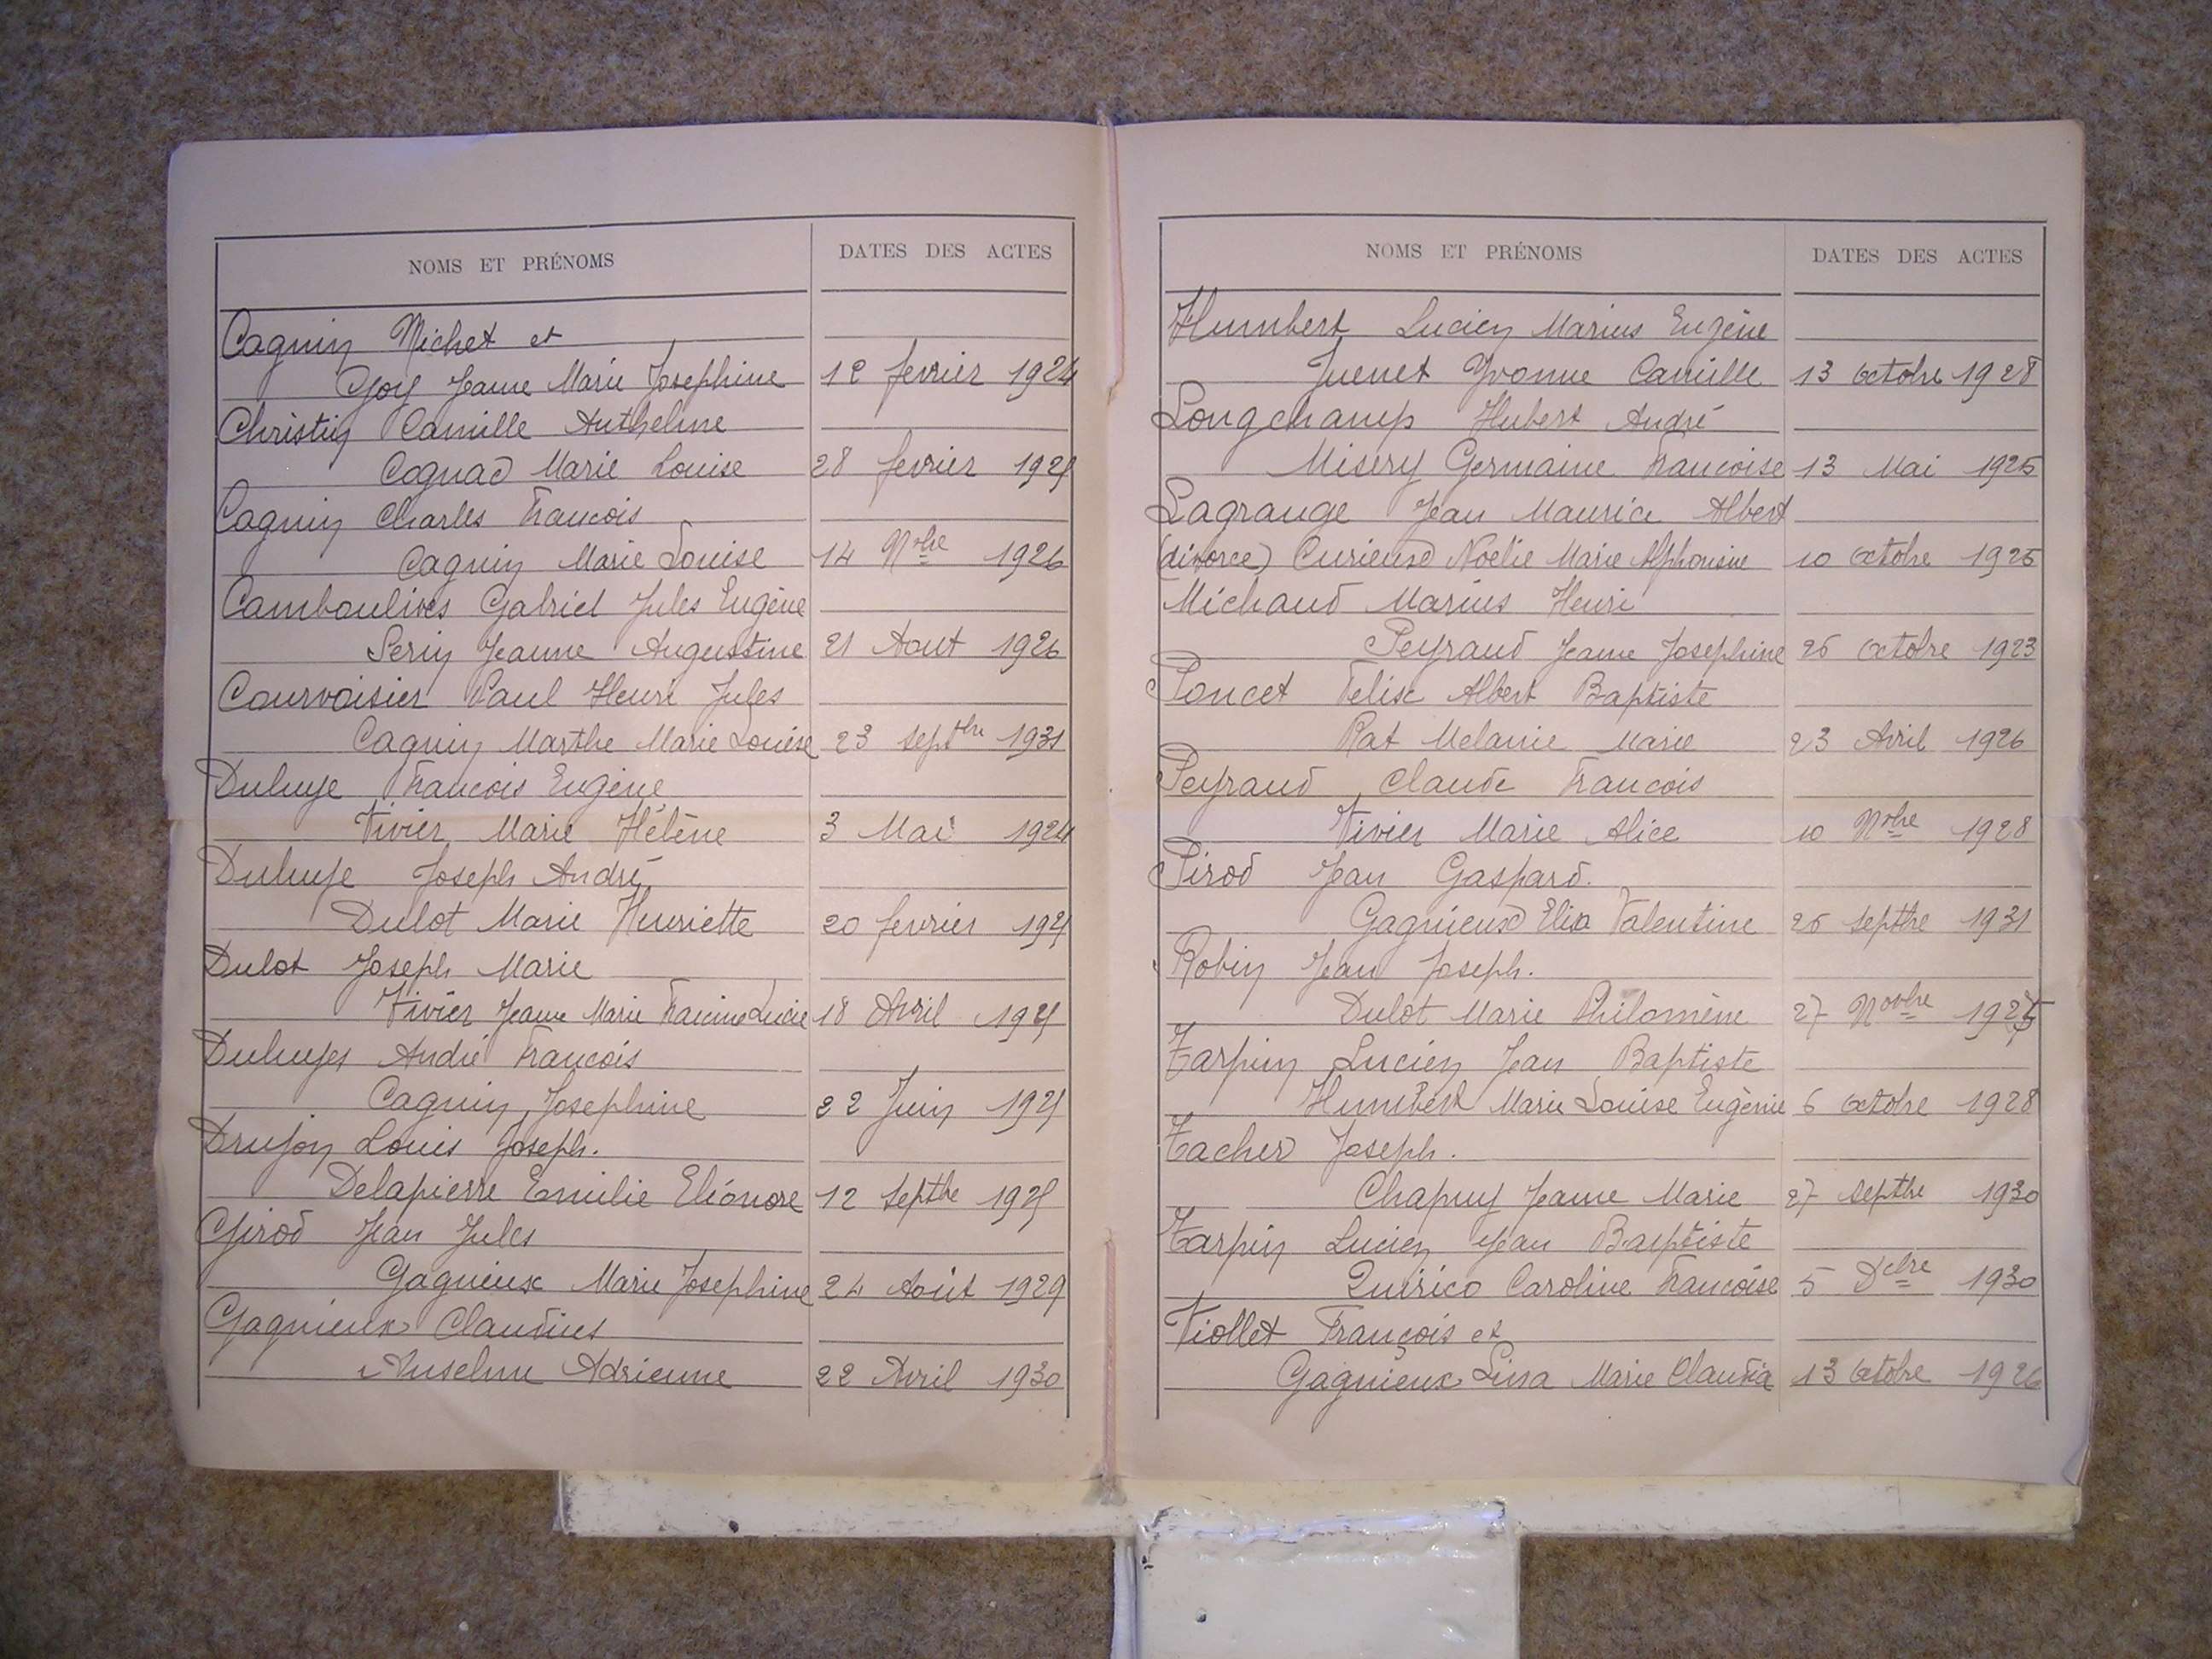 NOMS ET PRÉNOMS DATES DES ACTES
Cagnin Michet et
Goy Jeanne Marie Josephine 12 fevrier 1924
Christin Camille Anthelme
Cognad Marie Louise 28 fevrier 1925
Cagnin Charles Francois
Cagnin Marie Louise 14 Nbre 1926
Camboulives Gabriel Jules Eugène
Serin Jeanne Augustine 21 Aout 1926
Courvoisier Paul Henri Jules
Cagnin Marthe Marie Louise 23 septbre 1931
Duhuye Francois Eugène
Vivier Marie Hélène 3 Mai 1924
Duhuye Joseph André
Dulot Marie Henriette 20 fevrier 192
Dulot Joseph Marie
Vivier Jeanne Marie Lucie 18 Avril 192
Duhuyes André Francois
Cagnin Josephine 22 Juin 192
Drujon Louis Joseph.
Delapierre Emilie Eléonore 12 Septbre 192
Girod Jean Jules
Gagnieux Marie Josephine 24 Août 1929
Gagnieux Claudius
Anselme Adrienne 22 Avril 1930
NOMS ET PRÉNOMS DATES DES ACTES
Humbert Lucien Marius Eugène
Juenet Yvonne Camille 13 octobre 1928
Longchamp Hubert André
Misery Germaine Francoise 13 Mai 1925
Lagrange Jean Maurice Albert
(divorce) Curieux Noelie Marie Alphonsine 10 octobre 1925
Michaud Marius Henri
Peyraud Jeanne Josephine 25 octobre 1923
Poncet Felix Albert Baptiste
Rat Melanie Marie 23 Avril 1926
Peyraud Claude Francois
Vivier Marie Alice 10 Nbre 1928
Pirod Jean Gaspard.
Gagnieux Elisa Valentine 26 septbre 1931
Robin Jean Joseph.
Dulot Marie Philomène 27 Novbre 1925
Tarpin Lucien Jean Baptiste
Humbert Marie Louise Eugènie 6 octobre 1928
Tacher Joseph.
Chapuy Jeanne Marie 27 septbre 1930
Tarpin Lucien Jean Baptiste
Quirico Caroline Francoise 5 Dcbre 1930
Viollet François et
Gagnieux Lina Marie Claudia 13 octobre 1926